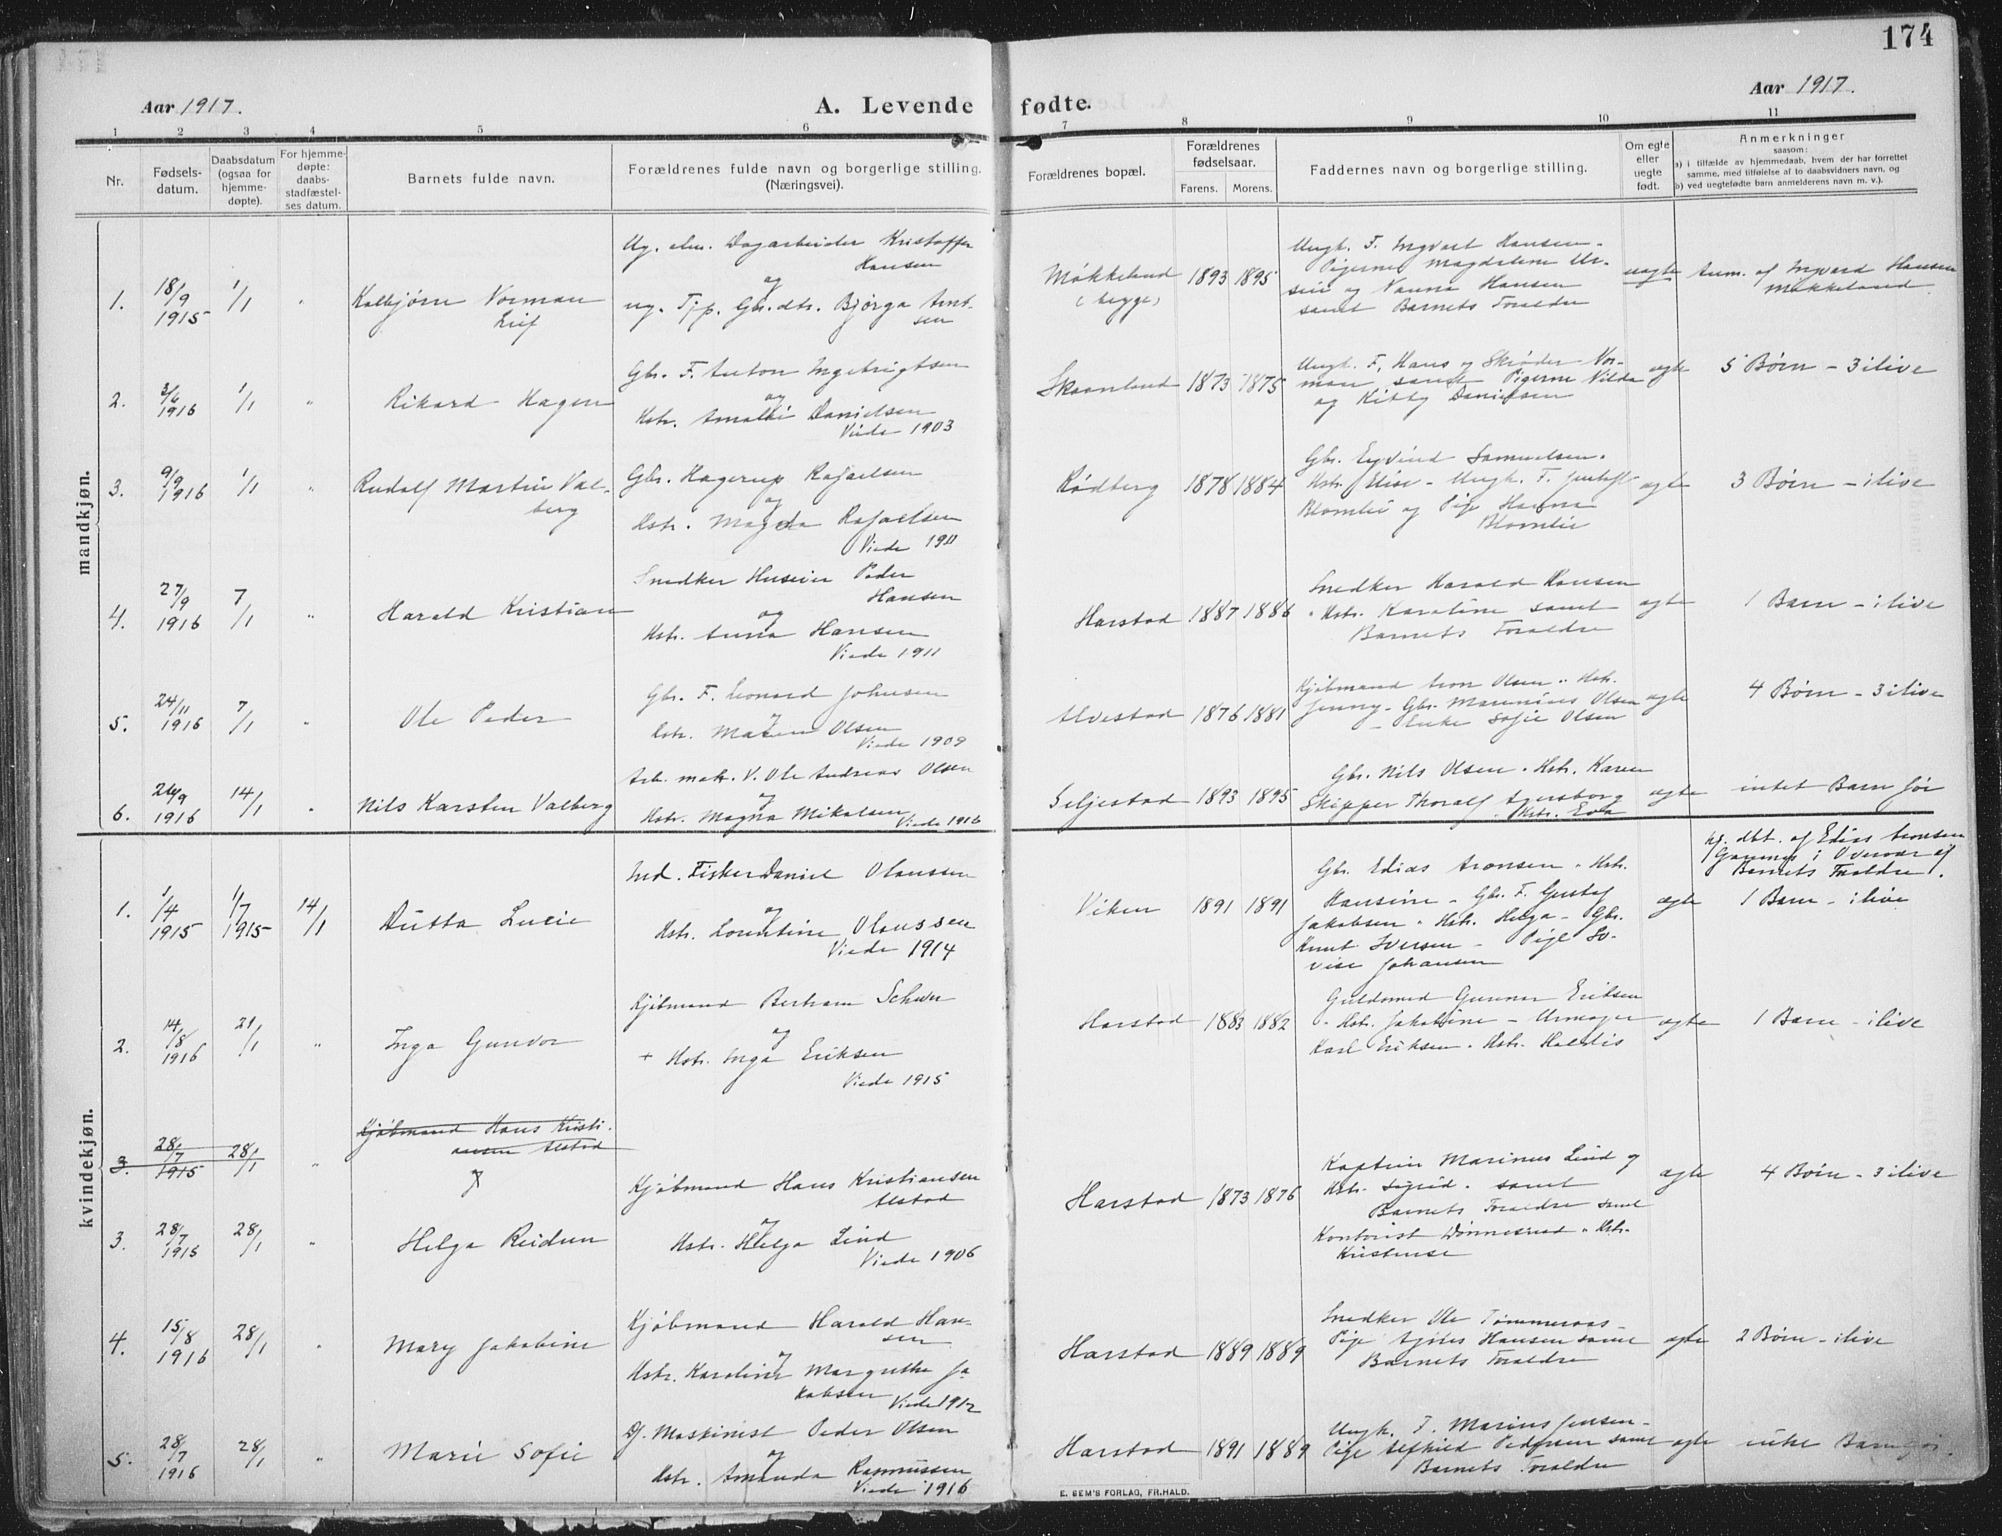 174
Aar 1917.
A. Levende fødte.
Aar 1917.
1 2 3 4 5 6 7 8 9 10 11
Nr.
Fødsels-
datum.
Daabsdatum
(ogsaa for
hjemme-
døpte).
For hjemme-
døpte:
daabs-
stadfæstel-
ses datum.
Barnets fulde navn.
Forældrenes fulde navn og borgerlige stilling.
(Næringsvei).
Forældrenes bopæl.
Forældrenes
fødselsaar.
Farens. Morens.
Faddernes navn og borgerlige stilling.
Om egte
eller
uegte
født.
Anmerkninger
saasom:
a) i tilfælde av hjemmedaab, hvem der har forrettet
samme, med tilføielse af to daabsvidners navn, og
b) ved uegtefødte barn anmelderens navn m. v.).
mandkjøn.
1.
18/9
1915
1/1
"
Norman
Ug. Dagarbeider Kristoffer
Hansen
og
ug. Gbr.dtr. Bjørga Arnt-
sen
Møkkeland
(begge)
1893 1895
Ungk. F. Ingvart Hansen -
Pigerne Magdalene
og Nanna Hansen
samt Barnets Foraldre
uægte
Anm. af Ingvard Hansen
Møkkeland
2.
3/6
1916
1/1
"
Rikard Hagen
Gbr. F. Anton Ingebrigtsen
og
Hstr. Danielsen
Viede 1903
Skaanland
1873 1875
Ungk. F. Hans og Nor-
man samt Pigerne Vilda
og Danielsen
ægte
5 Børn - 3 ilive
3.
9/9
1916
1/1
"
Rudolf Martin Val-
berg
Gbr. Hagerup Rafaelsen
og
Hstr. Magda Rafaelsen
Viede 1911
Rødberg
1878 1884
Gbr. Eyvind Samuelsen.
Hstr. Elise - Ungk. F.
Blomlie og Pige Hanna
Blomlie
ægte
3 Børn - ilive
4.
27/9
1916
7/1
"
Harald Kristian
Snedker Peder
Hansen
og
Hstr. Anna Hansen
Viede 1911
Harstad
1887 1886
Snedker Harald Hansen
" Hstr. Karoline samt
Barnets Foraldre
ægte
1 Barn - ilive
5.
24/11
1916
7/1
"
Ole Peder
Gbr. F. Leonard Johnsen
og
Hstr. Olsen
Viede 1909
Alvestad
1876 1881
Kjøbmand Aron Olsen " Hstr.
Jenny - Gbr. Olsen
- Enke Sofie Olsen
ægte
4 Børn - 3 ilive
6.
26/9
1916
14/1
"
Nils Karsten Valberg
Arb. Ole Andreas Olsen
og
Hstr. Magna Mikalsen
Viede 1916
Seljestad
1893 1895
Gbr. Nils Olsen " Hstr. Karen
Skipper Thoralf
" Hstr. Eva
ægte
intet Barn før
kvindekjøn.
1.
1/4
1915
1/7
1915
14/1
Dutta Lucie
Ind. Fisker Daniel Olaussen
og
Hstr. Lorentine Olaussen
Viede 1914
Viken
1891 1891
Gbr. Edias Aronsen " Hstr.
Hansine - Gbr. F. Gustaf
Jakobsen " Hstr. Helga - Gbr.
Knut Iversen - Pige Lo-
vise Johansen
ægte
hj. dbt. af Edias Aronsen
i Overvær af
Barnets Foraldre.
1 Barn - ilive
2.
14/8
1916
21/1
"
Inga Gunvor
Kjøbmand Bertram
og
+ Hstr. Inga Eriksen
Viede 1915
Harstad
1883 1882
Guldsmed Gunnar Eriksen
" Hstr. Jakobine - Urmager
Karl Eriksen " Hstr.
ægte
1 Barn - ilive
3.
28/7
1915
28/1
"
Kjøbmand Hans Kristi-
ansen Alstad
Kjøbmand Hans Kristiansen
Alstad
3.
28/7
1915
28/1
"
Helga Reidun
og
Hstr. Helga Lind
Viede 1906
Harstad
1873 1876
Kaptein Marinus Lind og
Hstr. Sigrid. samt
Barnets Foraldre samt
Kontorist " Hstr.
Kristense
ægte
4 Børn - 3 ilive
4.
15/8
1916
28/1
"
Mary Jakobine
Kjøbmand Harald Han-
sen
og
Hstr. Karoline Margrethe Ja-
kobsen
Viede 1912
Harstad
1889 1889
Snedker Ole Tømmeraas -
Pige Agnes Hansen samt
Barnets Foraldre
ægte
2 Børn - ilive
5.
28/7
1916
28/1
"
Marie Sofie
Maskinist Peder Olsen
og
Hstr. Amanda Rasmussen
Viede 1916
Harstad
1891 1889
Ungk. F. Marius Jensen -
Pige Pedersen samt
Barnets Foraldre
ægte
intet Barn før.
E. SEM'S FORLAG, FR.HALD.